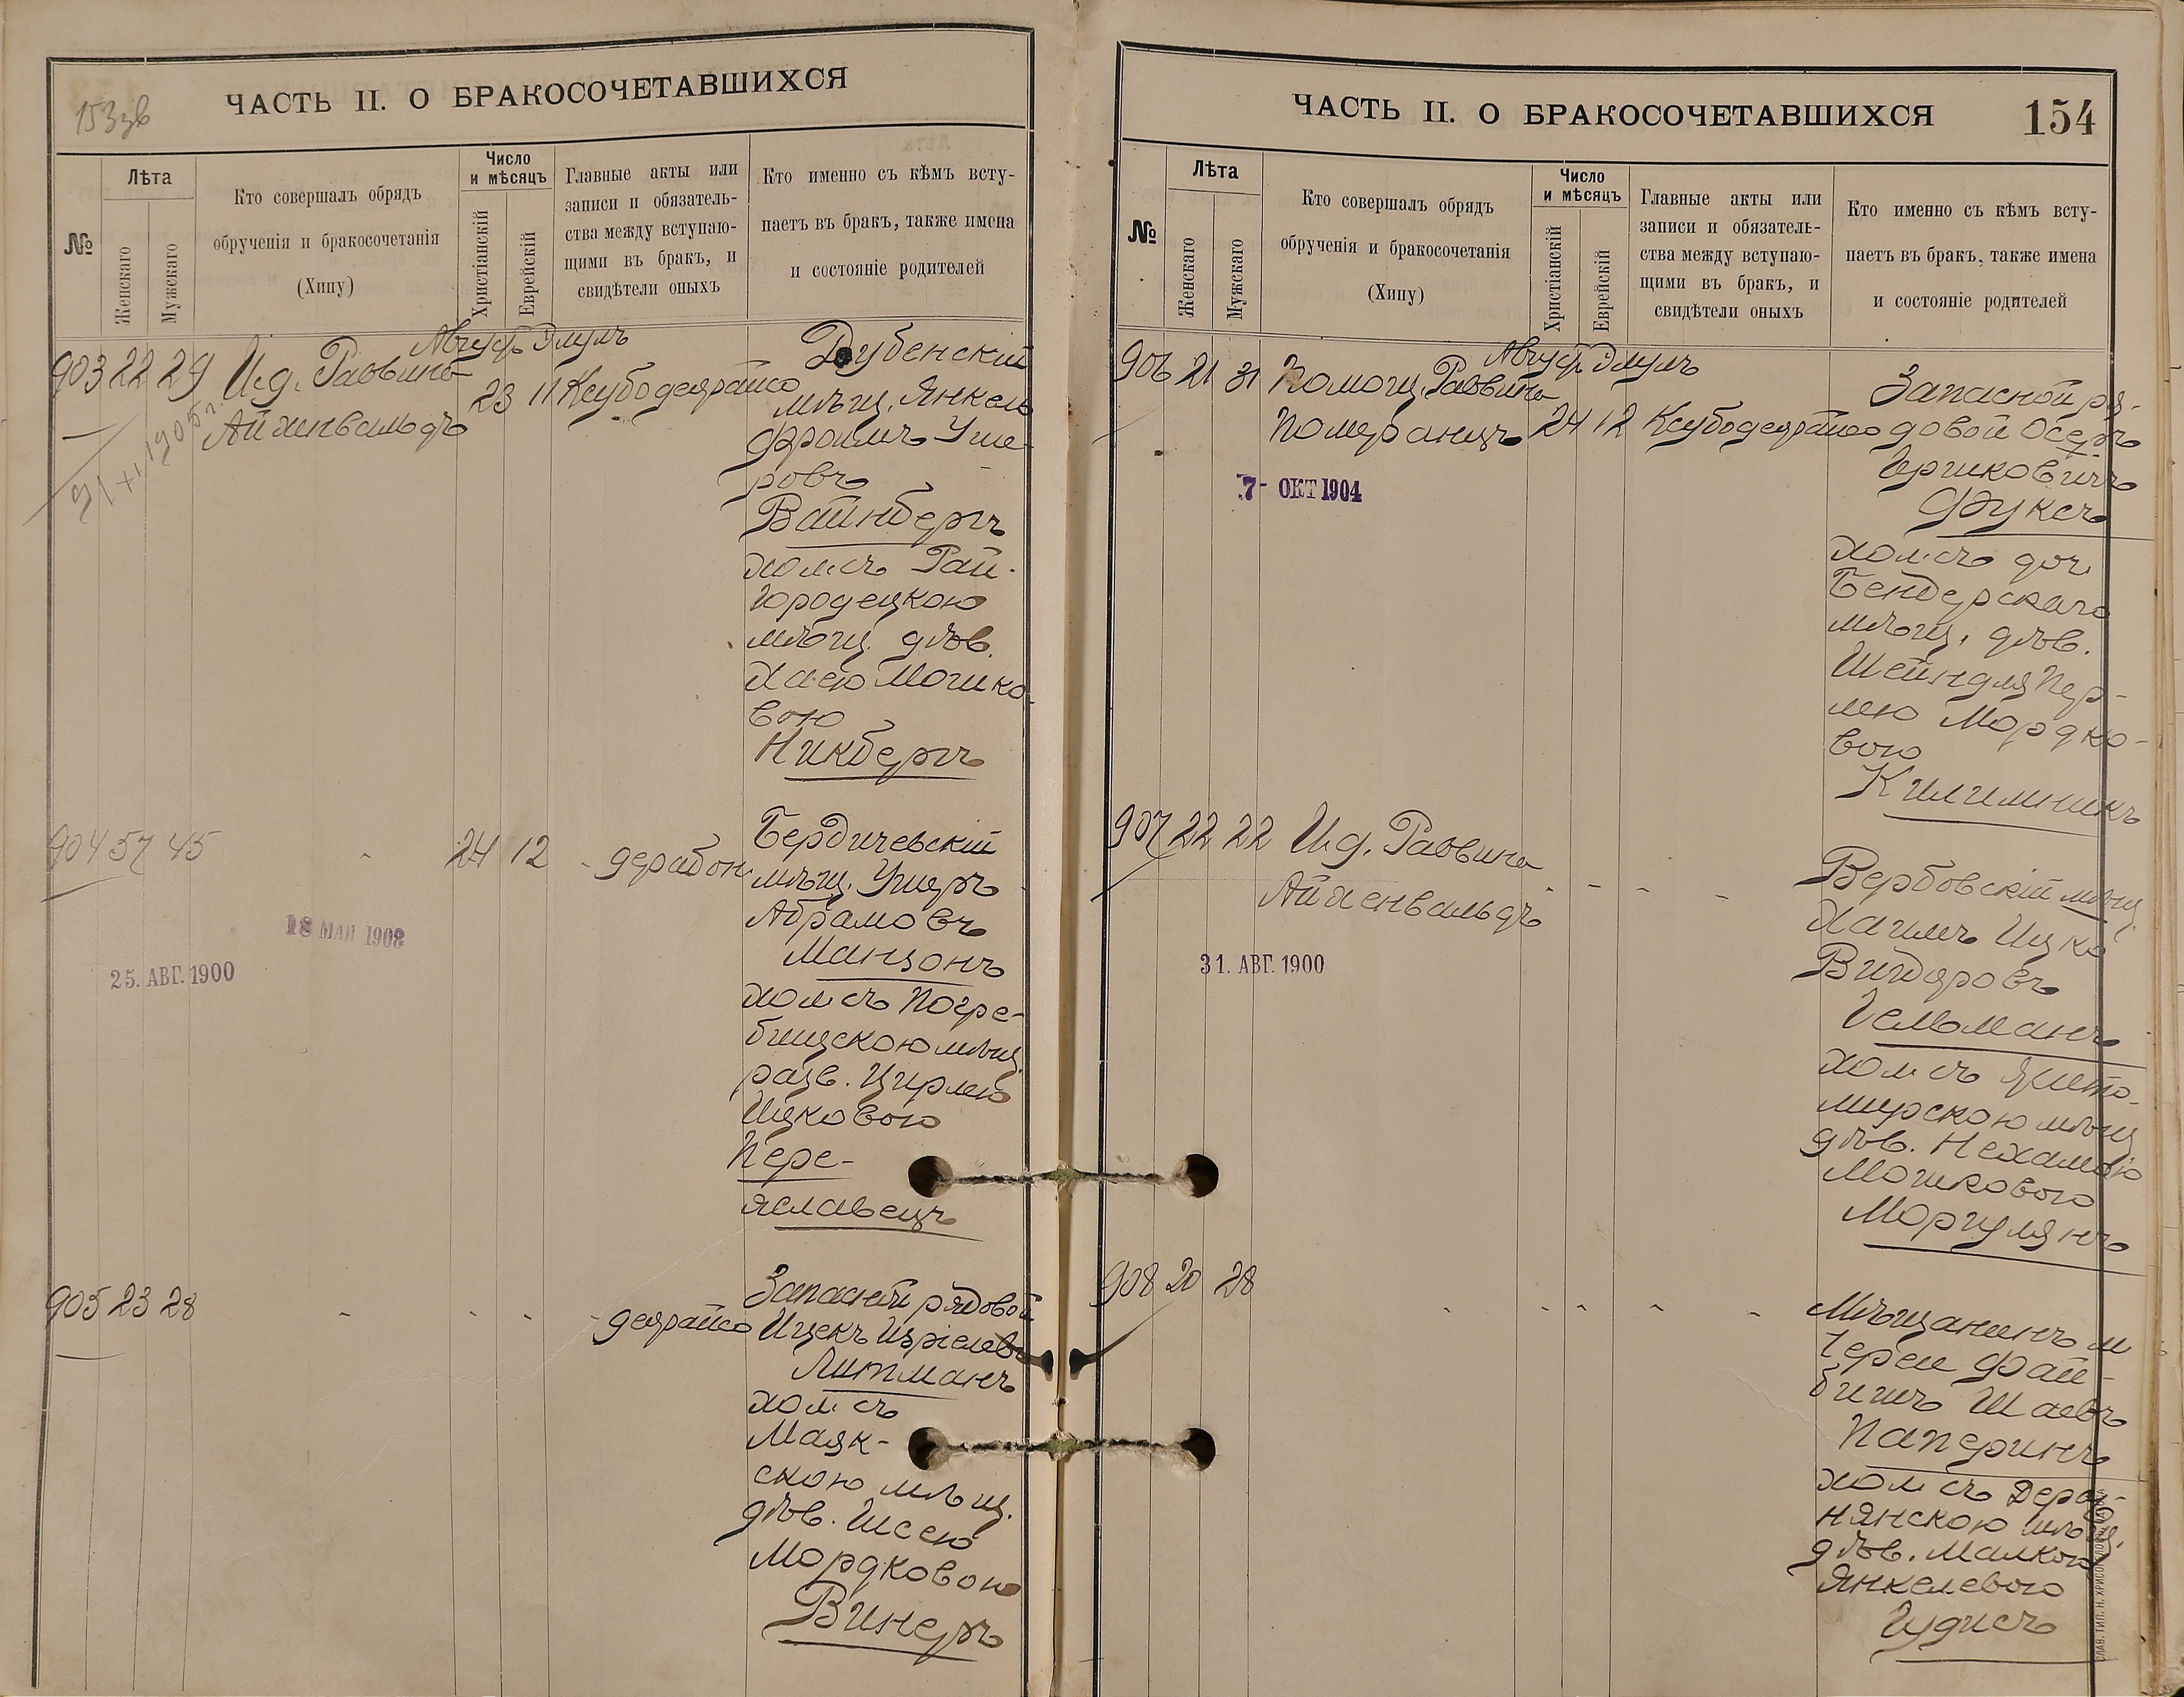 153зв
ЧАСТЬ II. О БРАКОСОЧЕТАВШИХСЯ
№
Лѣта
Женскаго
Мужскаго
Кто совершалъ обрядъ
обрученія и бракосочетанія
(Хипу)
Число
и мѣсяцъ
Христіанскій
Еврейскій
Главные акты или
записи и обязатель-
ства между вступаю-
щими въ бракъ, и
свидѣтели оныхъ
Кто именно съ кѣмъ всту-
паетъ въ бракъ, также имена
и состояніе родителей
Август Элулъ
903 22 29 И.д. Раввина 23 11 Ксубодеярайсо
Айхенвальдъ
Дубенскій
мѣщ. Янкель
Фроимъ Уше-
ровъ
Вайнбергъ
хол. съ Рай-
городецкою
мѣщ. дѣв.
Хаею Мошко-
вою
Никбергъ
904 57 45 - 24 12 - дерабон.
18 МАЯ 1908
25. АВГ. 1900
Бердичевскій
мѣщ. Ушеръ
Абрамовъ
Манзонъ
хол. съ Погре-
бищскою мѣщ.
разв. Цирлею
Ицковою
Пере-
яславецъ
905 23 28 - - - - деярайсо
Запасный рядовой
Ицекъ Изріелевъ
Литманъ
хол. съ
Маяк-
скою мѣщ.
дѣв. Исею
Мордковою
Винеръ
ЧАСТЬ II. О БРАКОСОЧЕТАВШИХСЯ
154
№
Лѣта
Женскаго
Мужскаго
Кто совершалъ обрядъ
обрученія и бракосочетанія
(Хипу)
Число
и мѣсяцъ
Христіанскій
Еврейскій
Главные акты или
записи и обязатель-
ства между вступаю-
щими въ бракъ, и
свидѣтели оныхъ
Кто именно съ кѣмъ всту-
паетъ въ бракъ, также имена
и состояніе родителей
Август Элулъ
906 21 31 Помощ. Раввина
Померанцъ 24 12 Ксубодеярайсо
7- ОКТ 1904
Запасной ря-
довой Осеръ
Гершковичъ
Фуксъ
хол. съ доч.
Бендерскаго
мѣщ. дѣв.
Шейндля Пер-
лею Мордко-
вою
Килимникъ
907 22 22 И.д. Раввина
Айхенвальдъ - - - -
31. АВГ. 1900
Вербовскій мѣщ.
Хаимъ Ицко
Вигдеровъ
Гельманъ
хол. съ Жито-
мирскою мѣщ.
дѣв. Нехамою
Мошковою
Моргулянъ
908 20 28 - - - - -
Мѣщанинъ м.
Береи Фай-
бишъ Шаевъ
Паперинъ
хол. съ Дераж-
нянскою мѣщ.
дѣв. Малкою
Янкелевою
Гудисъ